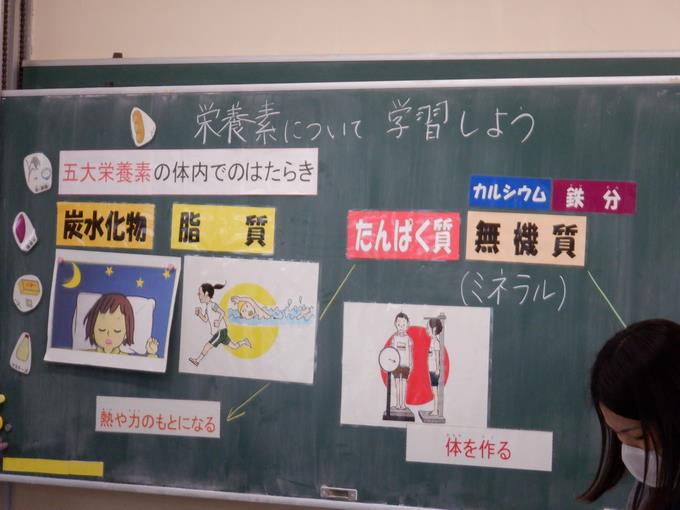 栄養素について 学習しよう
五大栄養素の体内でのはたらき
カルシウム 鉄分
炭水化物 脂質 たんぱく質 無機質
(ミネラル)
熱や力のもとになる
体を作る